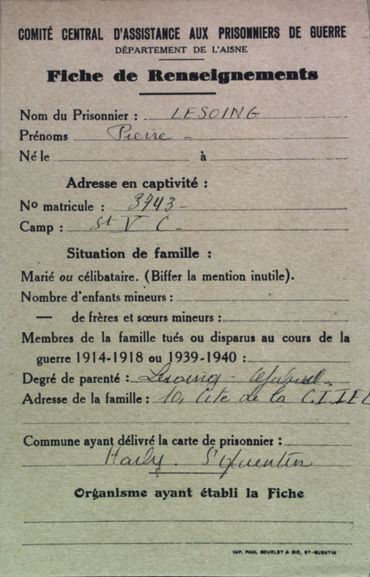 COMITÉ CENTRAL D'ASSISTANCE AUX PRISONNIERS DE GUERRE
DÉPARTEMENT DE L'AISNE
Fiche de Renseignements
Nom du Prisonnier : LESOING
Prénoms Pierre -
Né le à
Adresse en captivité :
No matricule : 3943 -
Camp : St V C -
Situation de famille :
Marié ou célibataire. (Biffer la mention inutile).
Nombre d'enfants mineurs :
— de frères et sœurs mineurs :
Membres de la famille tués ou disparus au cours de la
guerre 1914-1918 ou 1939-1940 :
Degré de parenté : Lesoing -
Adresse de la famille : 10, Cité de la C.I.I.E.L
Commune ayant délivré la carte de prisonnier :
Harly. St Quentin
Organisme ayant établi la Fiche
IMP. PAUL BOURLET & CIE, ST-QUENTIN